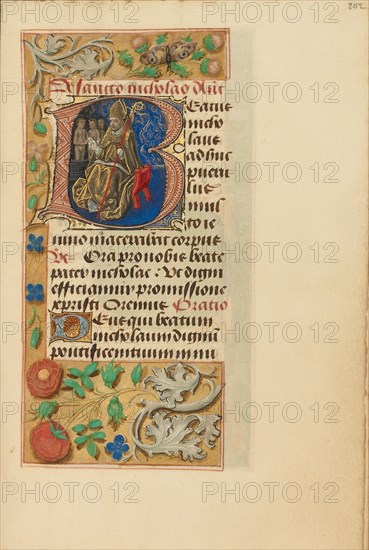 202
De sancto nicholao Ant
Beatus
nicho
laus
adhuc
pueru
lus
mul
to ie
iunio macerabat corpus
Vs Ora pro nobis beate
pater nicholae. Vt digni
efficiamur promissione
xpristi Oremus Oratio
Deus qui beatum
nicholaum dignum
pontificem tuum innu
PHOTO 12